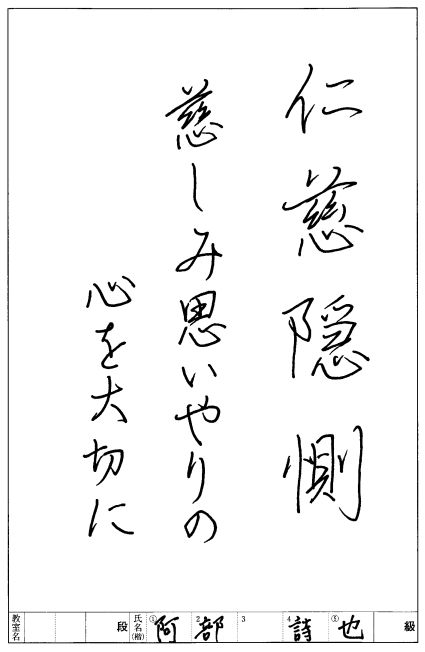 仁慈隠惻
慈しみ思いやりの
心を大切に
教室名 段 氏名(楷) ①阿 2部 3 4詩 ⑤也 級